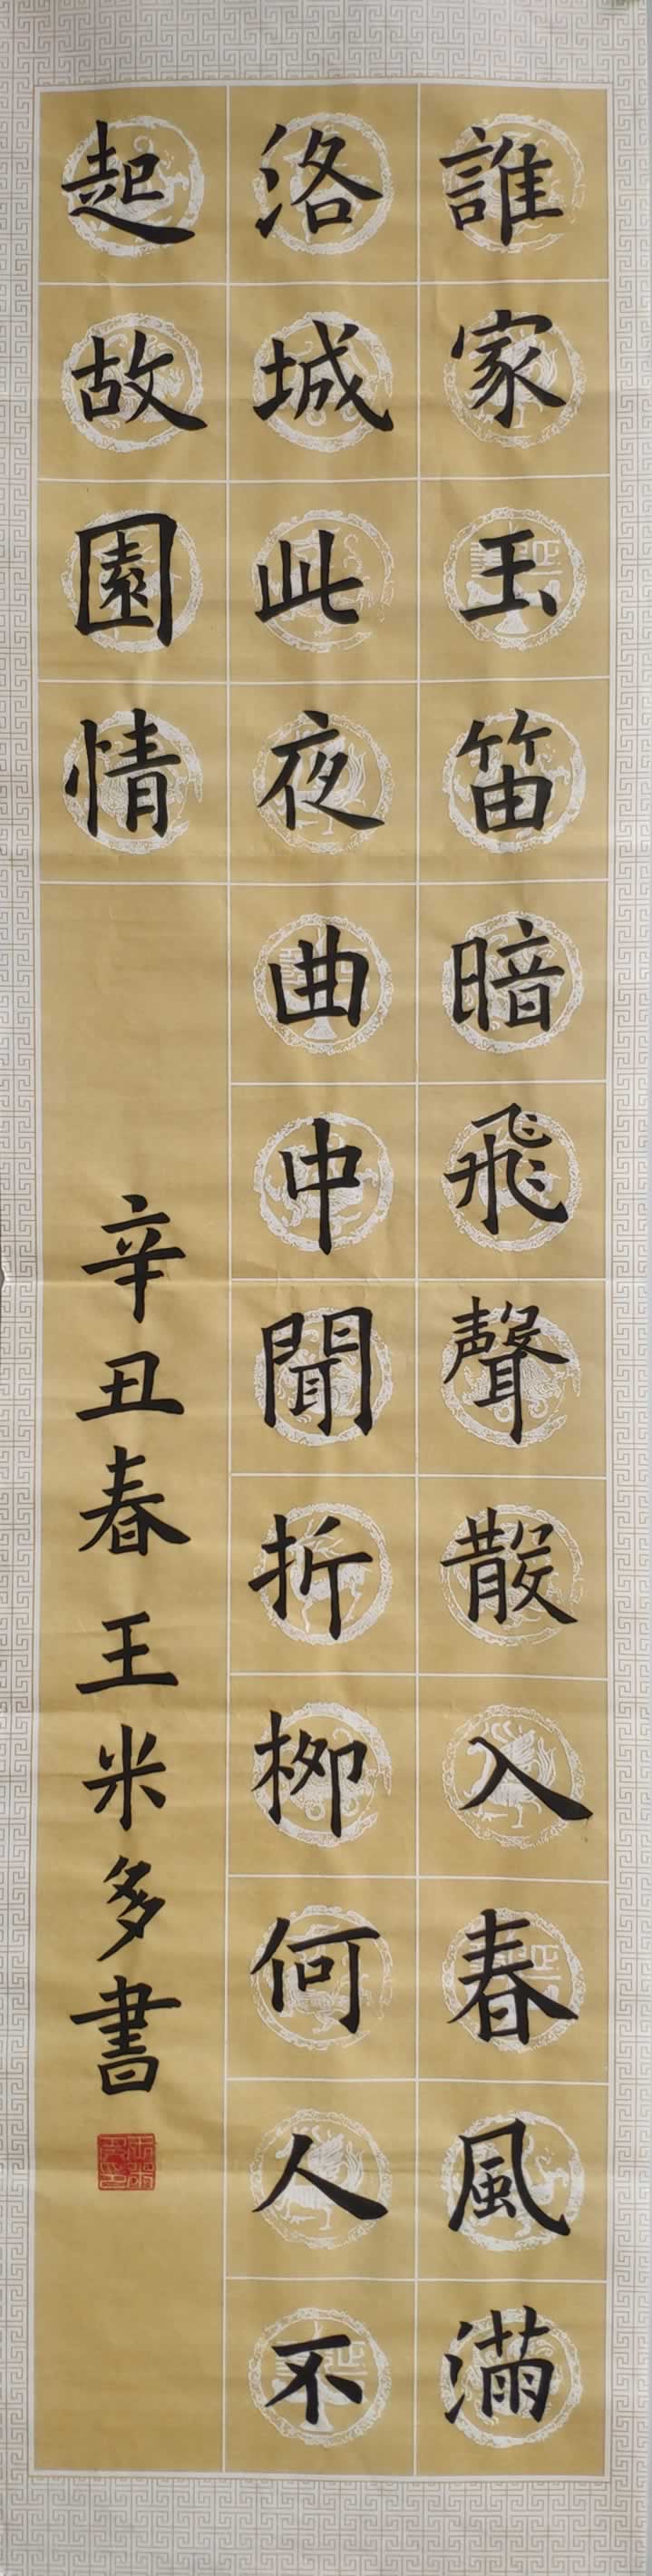 誰家玉笛暗飛聲散入春風滿
洛城此夜曲中聞折柳何人不
起故園情
辛丑春王米多書